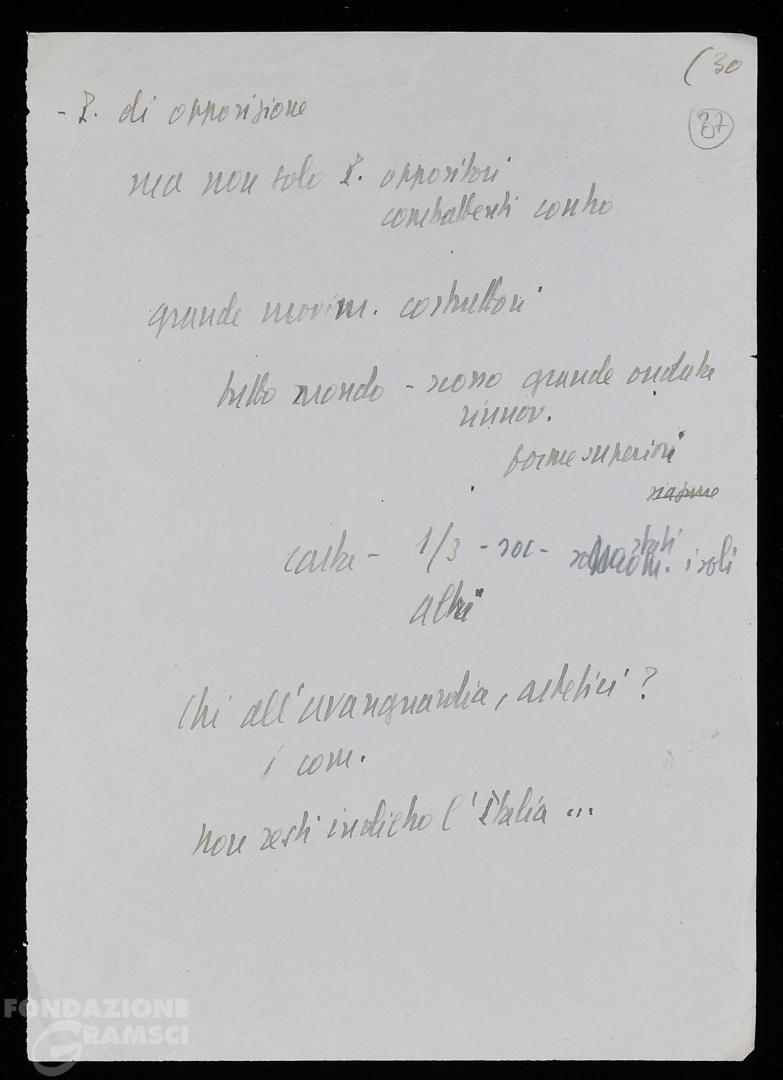 (30
87
- P. di opposizione
ma non solo P. oppositori
combattenti contro
grande movim. costruttori
tutto mondo - scosso grande ondata
rinnov.
forme superiori
carta - 1/3 - soc - stati
isoli
altri
Chi all'avanguardia, artefici?
i com.
Non resti indietro l'Italia ...
FONDAZIONE
GRAMSCI